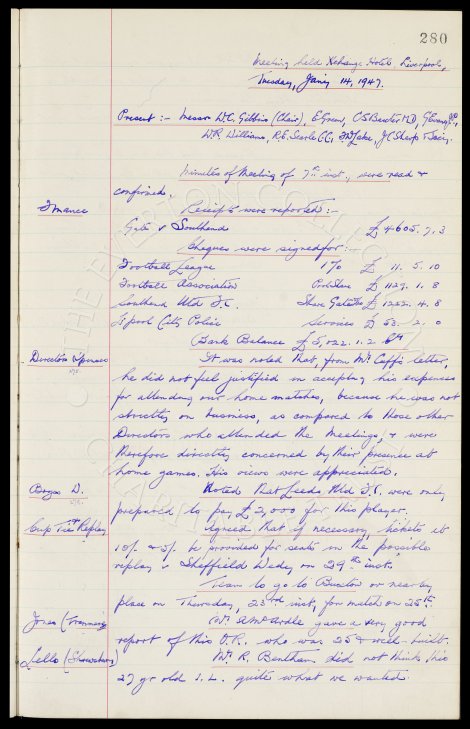 280
Meeting held Xchange Hotel, Liverpool,
Tuesday, Jany 14, 1947.
Present :- Messrs W.C. Gibbins (Chair), E. Green, C.S. Baxter M.D, G Evans J.P.,
W.R. Williams, R.E. Searle C.C, J.C. Sharp & Secy.
Minutes of Meeting of 7th inst., were read &
confirmed.
Finance Receipts were reported :-
Gate v Southend £ 4605. 7. 3
Cheques were signed for :-
Football League 1% £ 11. 5. 10
Football Association Pool Share £ 1129. 1. 8
Southend Utd F.C. Share Gate £ 1252. 4. 8
L'pool City Police Services £ 53. 2. 0
Bank Balance £ 5,022. 1. 2
Directors Expenses It was noted that, from Mr Cuff's letter,
he did not feel justified in accepting his expenses
for attending our home matches, because he was not
strictly on business, as compared to those other
Directors who attended the Meetings, & were
therefore directly concerned by their presence at
home games. His views were appreciated.
Boyes W. Noted that Leeds Utd F.C. were only
prepared to pay £2,000 for this player.
Cup Tie Replay Agreed that if necessary, tickets at
10/- & 5/- be provided for seats in the possible
replay v Sheffield Wedey on 29th inst.
Team to go to Buxton or nearby
place on Thursday, 23rd inst, for match on 25th.
Jones (Tranmere) Mr. McArdle gave a very good
report of this O.R. who was 25 & well-built.
Lello (Shrewsbury) Mr R. Bentham did not think this
27 yr old I.L. quite what we wanted.